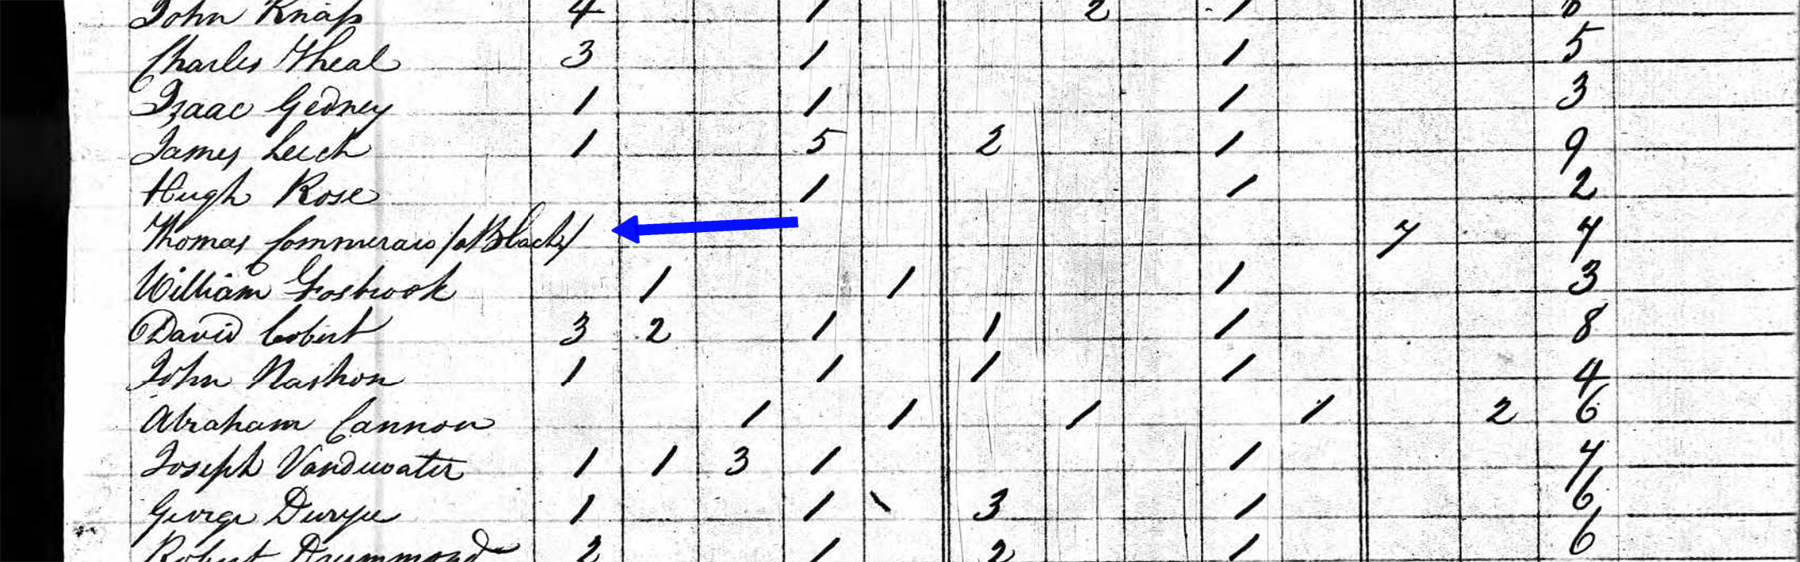 John Knap 4 1 2 1 6
Charles Theal 3 1 1 5
Isaac Gedney 1 1 1 3
James Leech 1 5 2 1 9
Hugh Rose 1 1 2
Thomas Commeraw /a Black/ 7 7
William Gosbrook 1 1 1 3
David Cobert 3 2 1 1 1 8
John Nashon 1 1 1 1 4
Abraham Cannon 1 1 1 1 2 6
Joseph Vandewater 1 1 3 1 1 7
George Duryee 1 1 \ 3 1 6
Robert Drummond 2 1 2 1 6